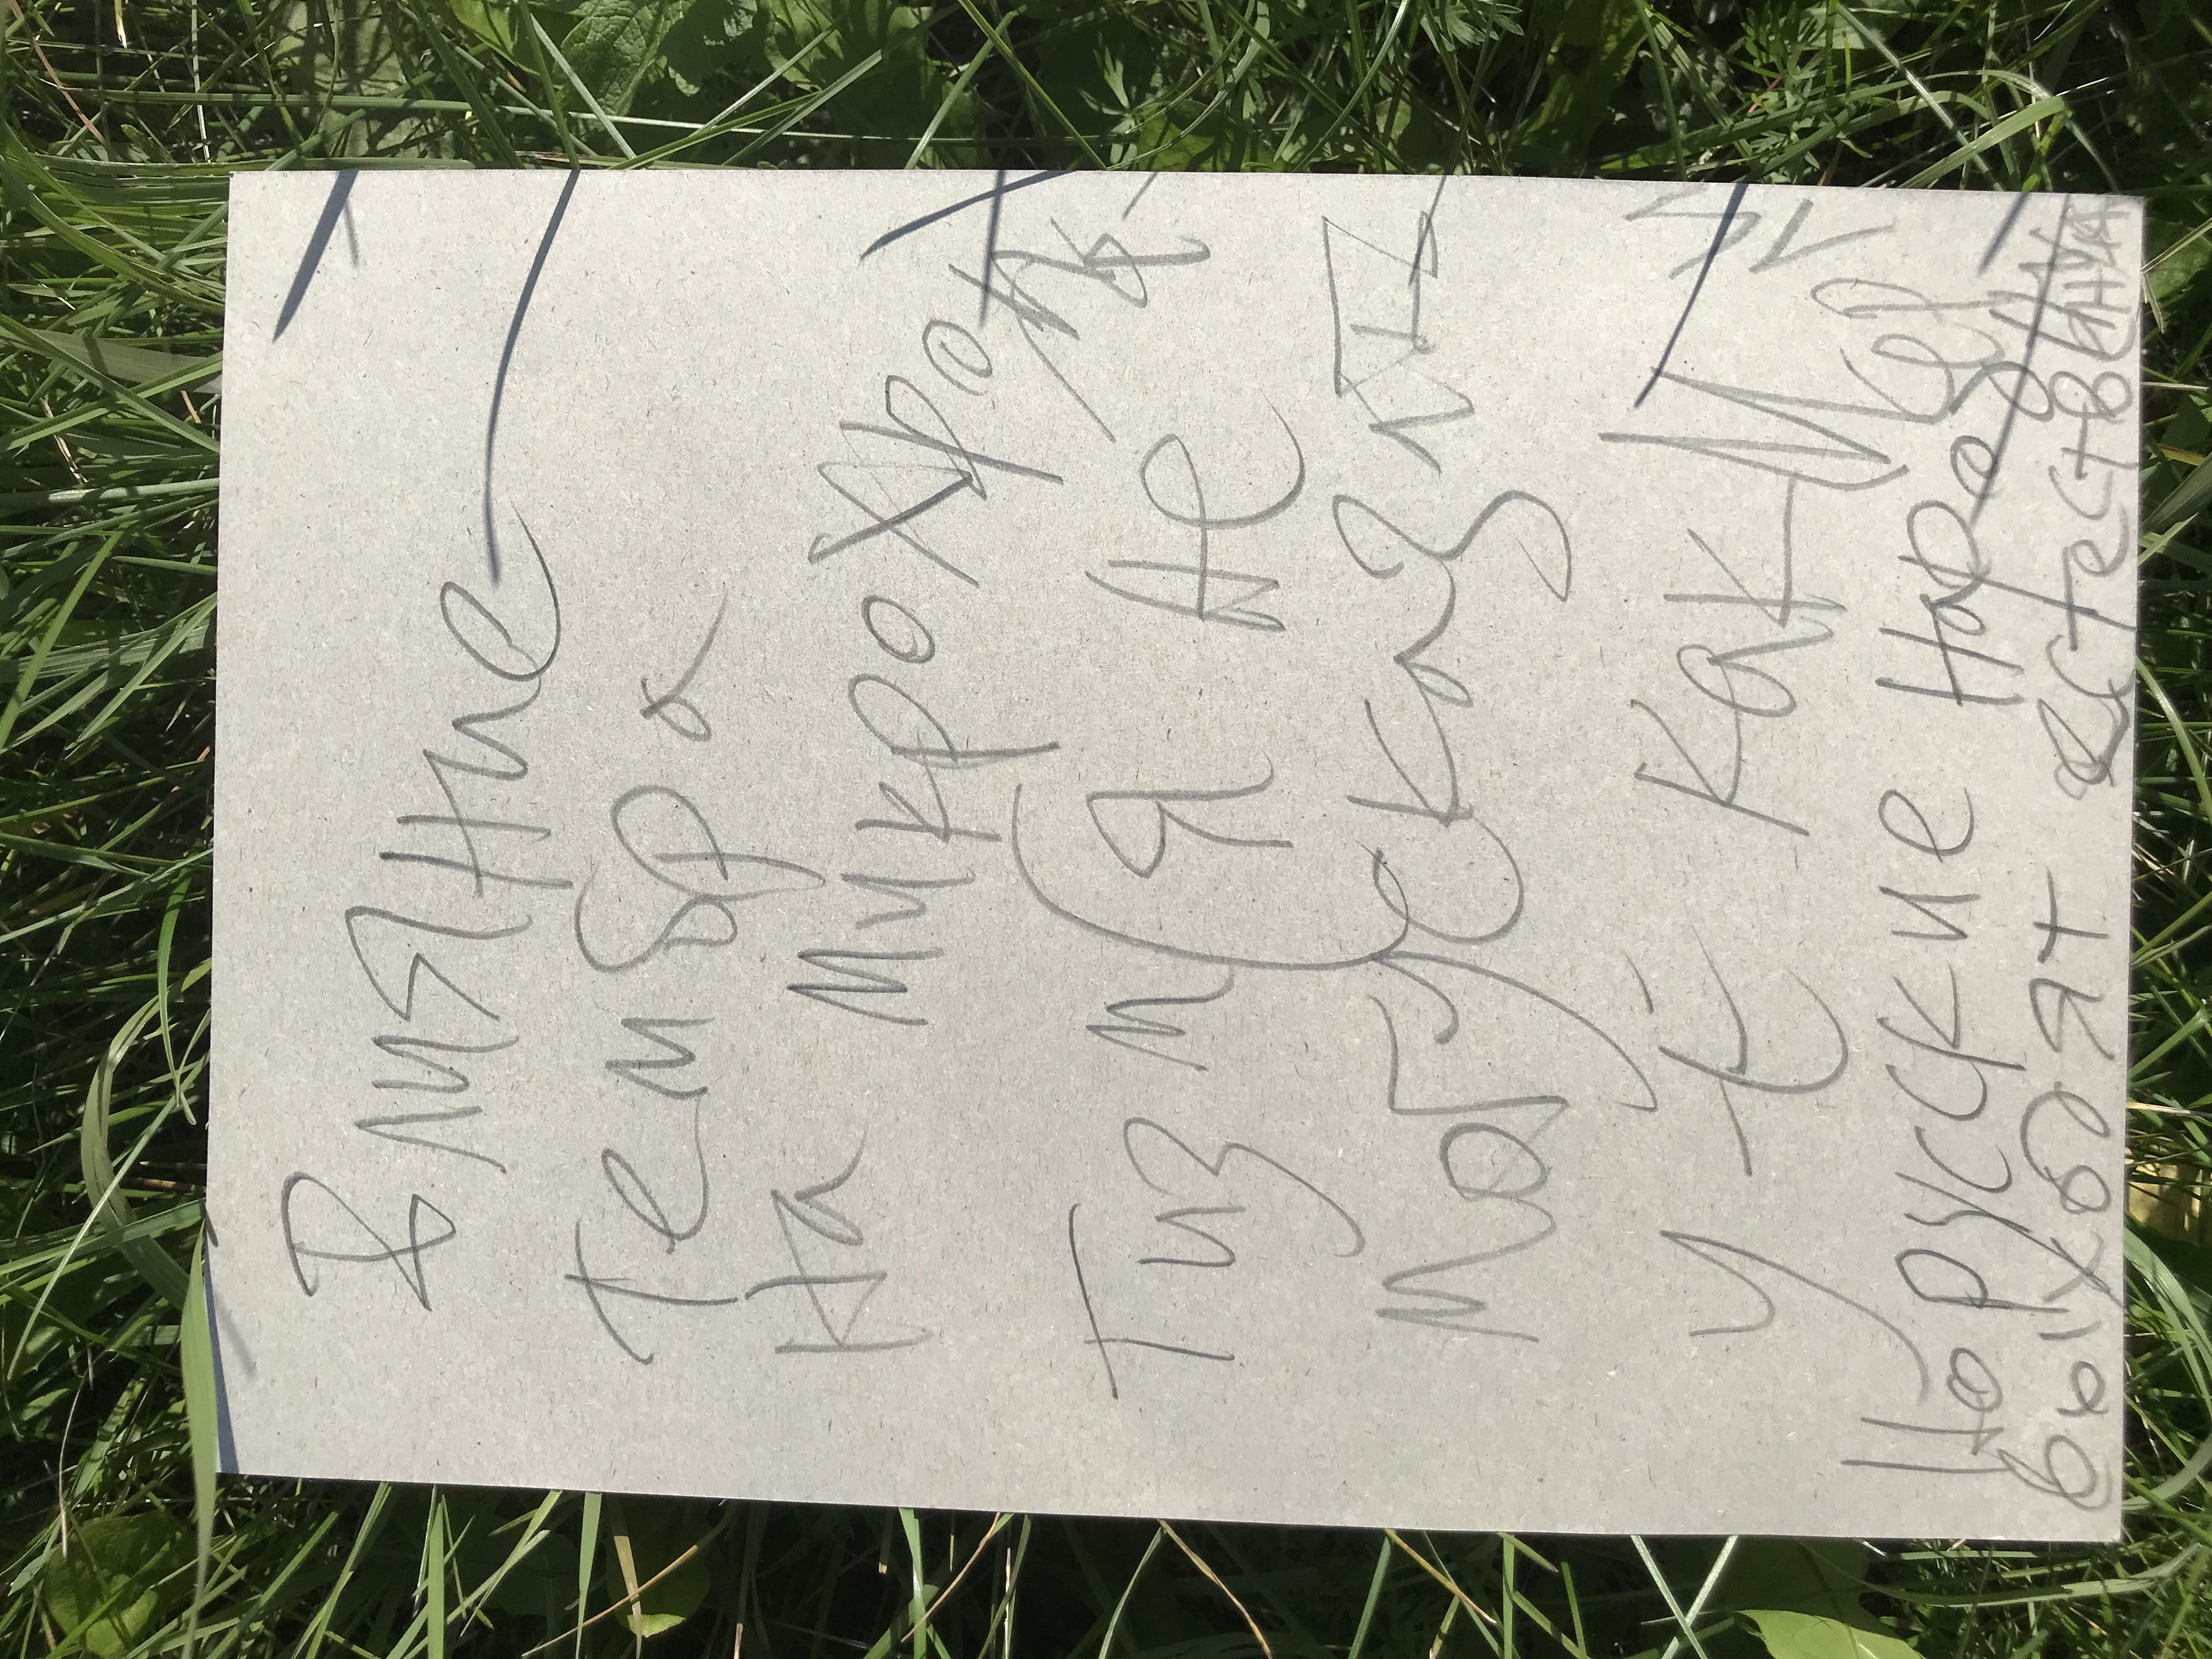 Влияние
тембра
на микрохро
тизм Я не
могу сказать
у ё как
Но русские народ
выходят естествен